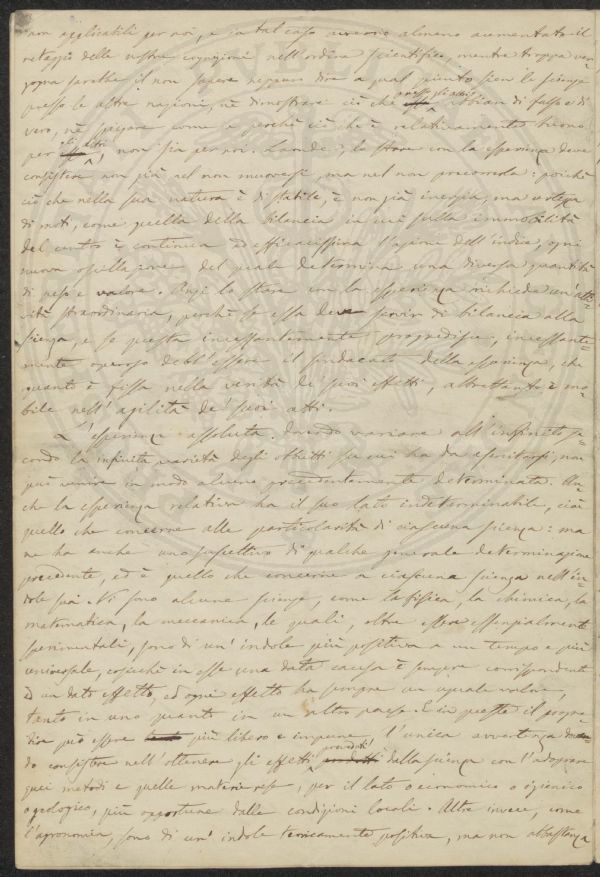 non applicabili per noi, e in tal caso avremo almeno aumentato il
retaggio delle nostre cognizioni nell'ordine scientifico, mentre troppa ver-
gogna sarebbe il non sapere neppure dire a qual punto sien le scienze
presso le altre nazioni, nè dimostrare ciò che esse abbian di falso e di
vero, nè spiegare come e perchè ciò che è relativamente buono
per gli altri, non sia per noi. Laonde, lo stare con la esperienza deve
consistere non già nel non muoversi, ma nel non precorrerla: poichè
ciò che nella sua natura è di stabile, è non già inerzia, ma
di moti, come quella della bilancia in cui sulla immobilità
del centro è continua ed efficacissima l'azione dell'indice, ogni
nuova oscillazione del quale determina una diversa quantità
di peso e valore. Anzi lo stare con la esperienza richiede un'atti-
vità straordinaria, perchè se essa deve servir di bilancia alla
scienza, e se questa incessantemente progredisce, incessante-
mente operoso debb'essere il sindacato della esperienza, che
quanto è fissa nella verità de' suoi effetti, altrettanto è mo-
bile nell'agilità de' suoi atti.
L'esperienza assoluta, dovendo variare all'infinito se-
condo la infinita varietà degli obbietti su cui ha da esercitarsi, non
può venire in modo alcuno precedentemente determinata. An-
che la esperienza relativa ha il suo lato indeterminabile, cioè
quello che concerne alle particolarità di ciascuna scienza: ma
ne ha anche uno suscettivo di qualche generale determinazione
precedente, ed è quello che concerne a ciascuna scienza nell'in-
dole sua. Vi sono alcune scienze, come la fisica, la chimica, la
matematica, la meccanica, le quali, oltre essere essenzialmente
sperimentali, sono di un'indole più positiva a un tempo e più
universale, cosicchè in esse una data causa è sempre corrispondente
ad un dato effetto, ed ogni effetto ha sempre un uguale valore,
tanto in uno quanto in un altro paese. E in queste il progre-
dire può essere più libero e impune, l'unica avvertenza doven-
do consistere nell'ottenere gli effetti preveduti dalla scienza con l'adoprare
quei metodi e quelle materie, per il lato o economico o igienico
o geologico, più opportune dalle condizioni locali. Altre invece, come
l'agronomia, sono di un'indole teoricamente positiva, ma non abbastanza